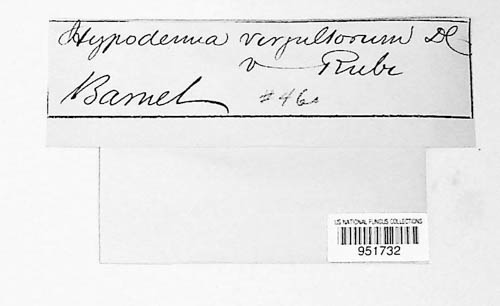 Hypoderma virgultorum DC
v Rubi
Barnet
#46
US NATIONAL FUNGUS COLLECTIONS
951732